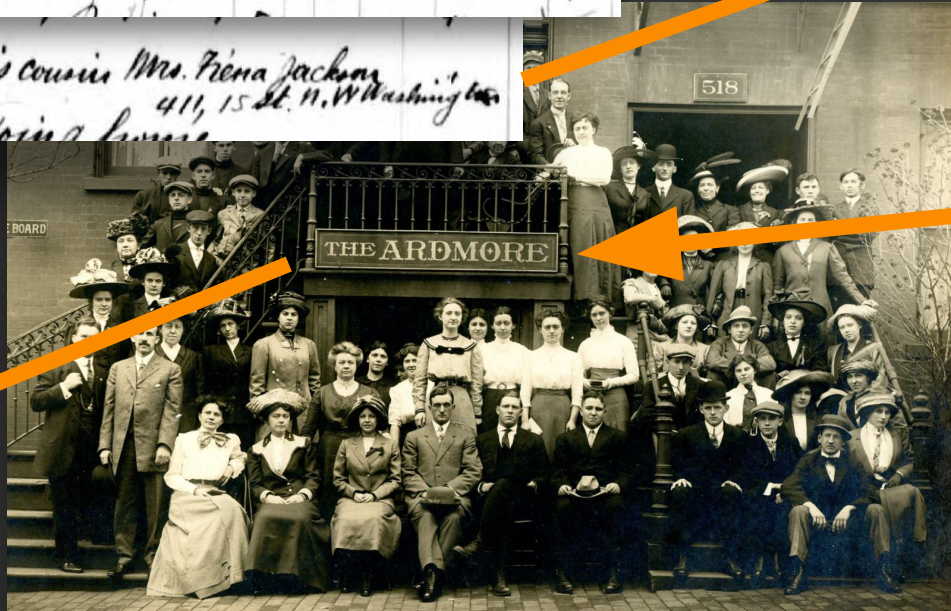 s cousin Mrs. Fiena Jackson
411, 15 St. N.W Washington
oing home
518
E BOARD
THE ARDMORE